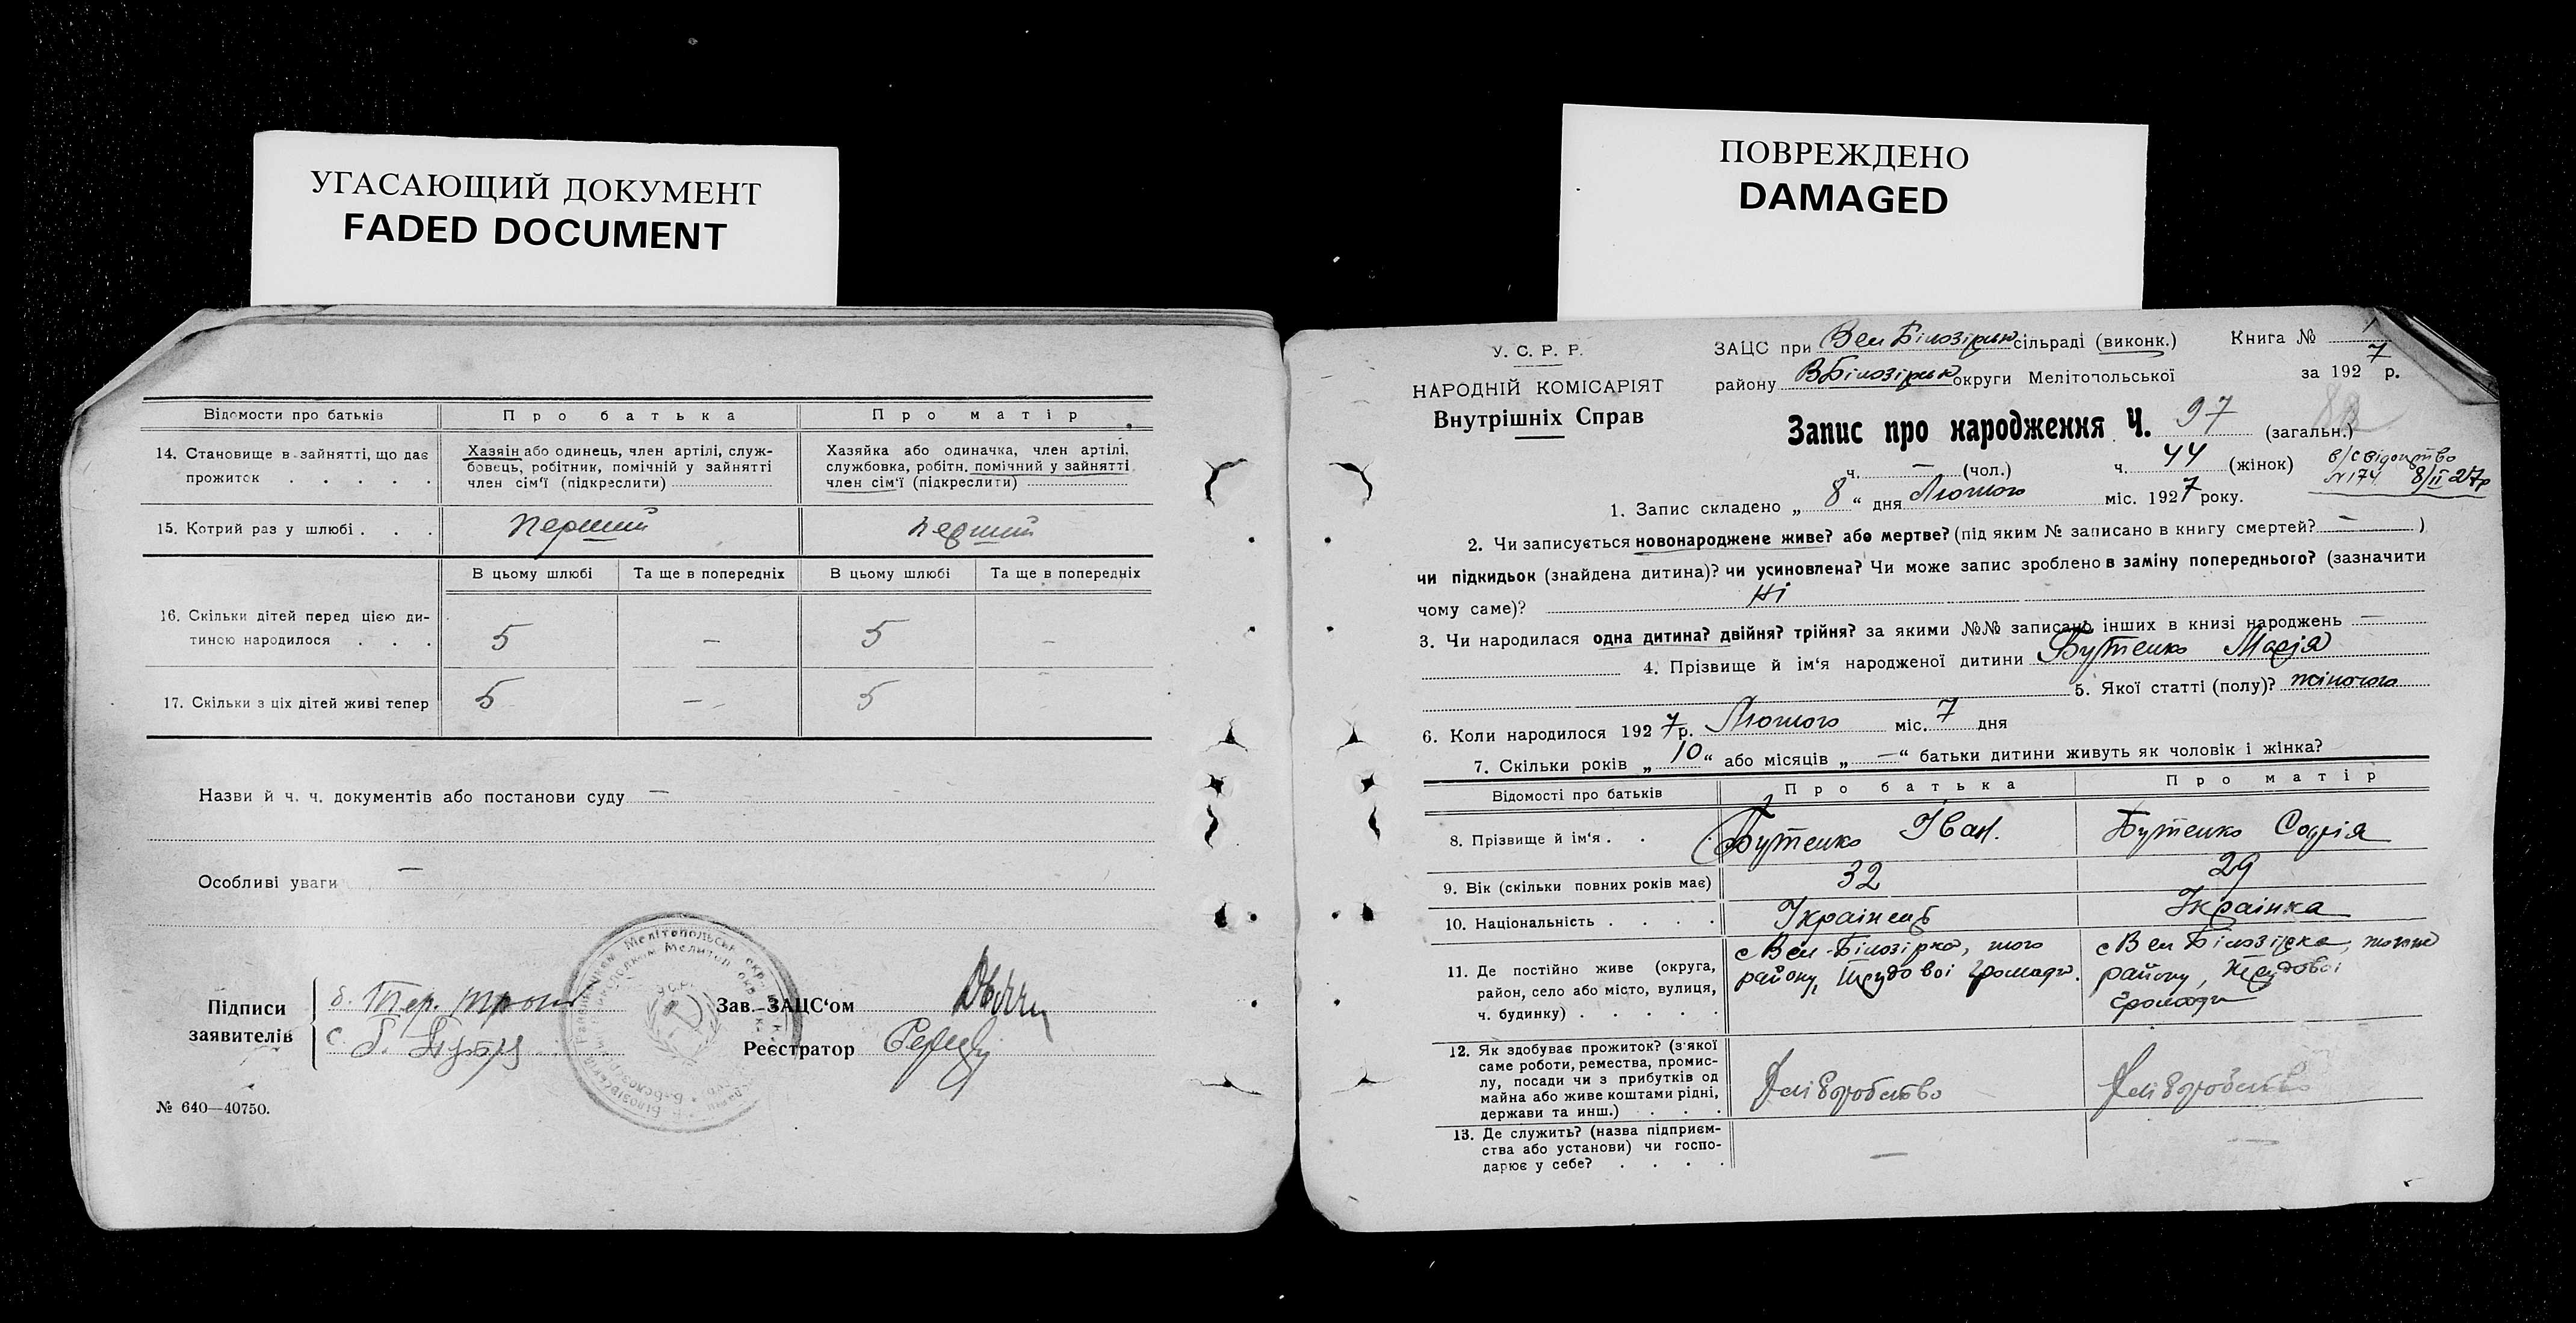 УГАСАЮЩИЙ ДОКУМЕНТ
FADED DOCUMENT
Відомости про батьків
Про батька
Про матір
14. Становище в занятті, що дає прожиток . . . . .
Хазяін або одинець, член артілі, служ-
бовець, робітник, помічній у зайнятті
член сім'ї (підкреслити)
Хазяйка або одиначка, член артілі,
службовка, робітн. помічний у зайнятті
член сім'ї (підкреслити)
15. Котрий раз у шлюбі . . .
перший
перший
В цьому шлюбі
Та ще в попередніх
В цьому шлюбі
Та ще в попередніх
16. Скільки дітей перед цією ди-
тиною народилося . . .
5 – 5 –
17. Скільки з ціх дітей живі тепер
5 – 5
Назви й ч. ч. документів або постанови суду —
Особливі уваги —
Підписи
заявителів
Зав. ЗАЦС'ом
Реєстратор
№ 640—40750.
ПОВРЕЖДЕНО
DAMAGED
У. С. Р. Р.
НАРОДНІЙ КОМІСАРІЯТ
Внутрішніх Справ
ЗАЦС при Вел Білозірськ сільраді (виконк.)
Книга № 1
району ВБілозірськ округи Мелітопольської
за 1927 р.
Запис про народження Ч. 97 (загальн.)
ч. — (чол.) ч. 44 (жінок)
в/свідоцтво
№174 8/II 27р
1. Запис складено „ 8 “ дня Лютого міс. 1927 року.
2. Чи записується новонароджене живе? або мертве? (під яким № записано в книгу смертей? — )
чи підкидьок (знайдена дитина)? чи усиновлена? Чи може запис зроблено в заміну попереднього? (зазначити
чому саме)? Ні
3. Чи народилася одна дитина? двійня? трійня? за якими №№ записано інших в книзі народжень —
4. Прізвище й ім'я народженої дитини Бутенко Марія
5. Якої статті (полу)? жіночого
6. Коли народилося 1927 р. Лютого міс. 7 дня
7. Скільки років „ 10 “ або місяців „ — “ батьки дитини живуть як чоловік і жінка?
Відомості про батьків
Про батька
Про матір
8. Прізвище й ім'я . . .
Бутенко Іван.
Бутенко Софія
9. Вік (скільки повних років має)
32
29
10. Національність . . . .
Українець
Українка
11. Де постійно живе (округа,
район, село або місто, вулиця,
ч. будинку) . . . . .
с Вел-Білозірка, того
району, громади.
с Вел Білозірка, того
району,
громади
12. Як здобуває прожиток? (з'якої
саме роботи, ремества, промис-
лу, посади чи з прибутків од
майна або живе коштами рідні,
держави та инш.) . . .
Хліборобство
Хліборобство
13. Де служить? (назва підприєм-
ства або установи) чи госпо-
дарює у себе? . . . .
— —